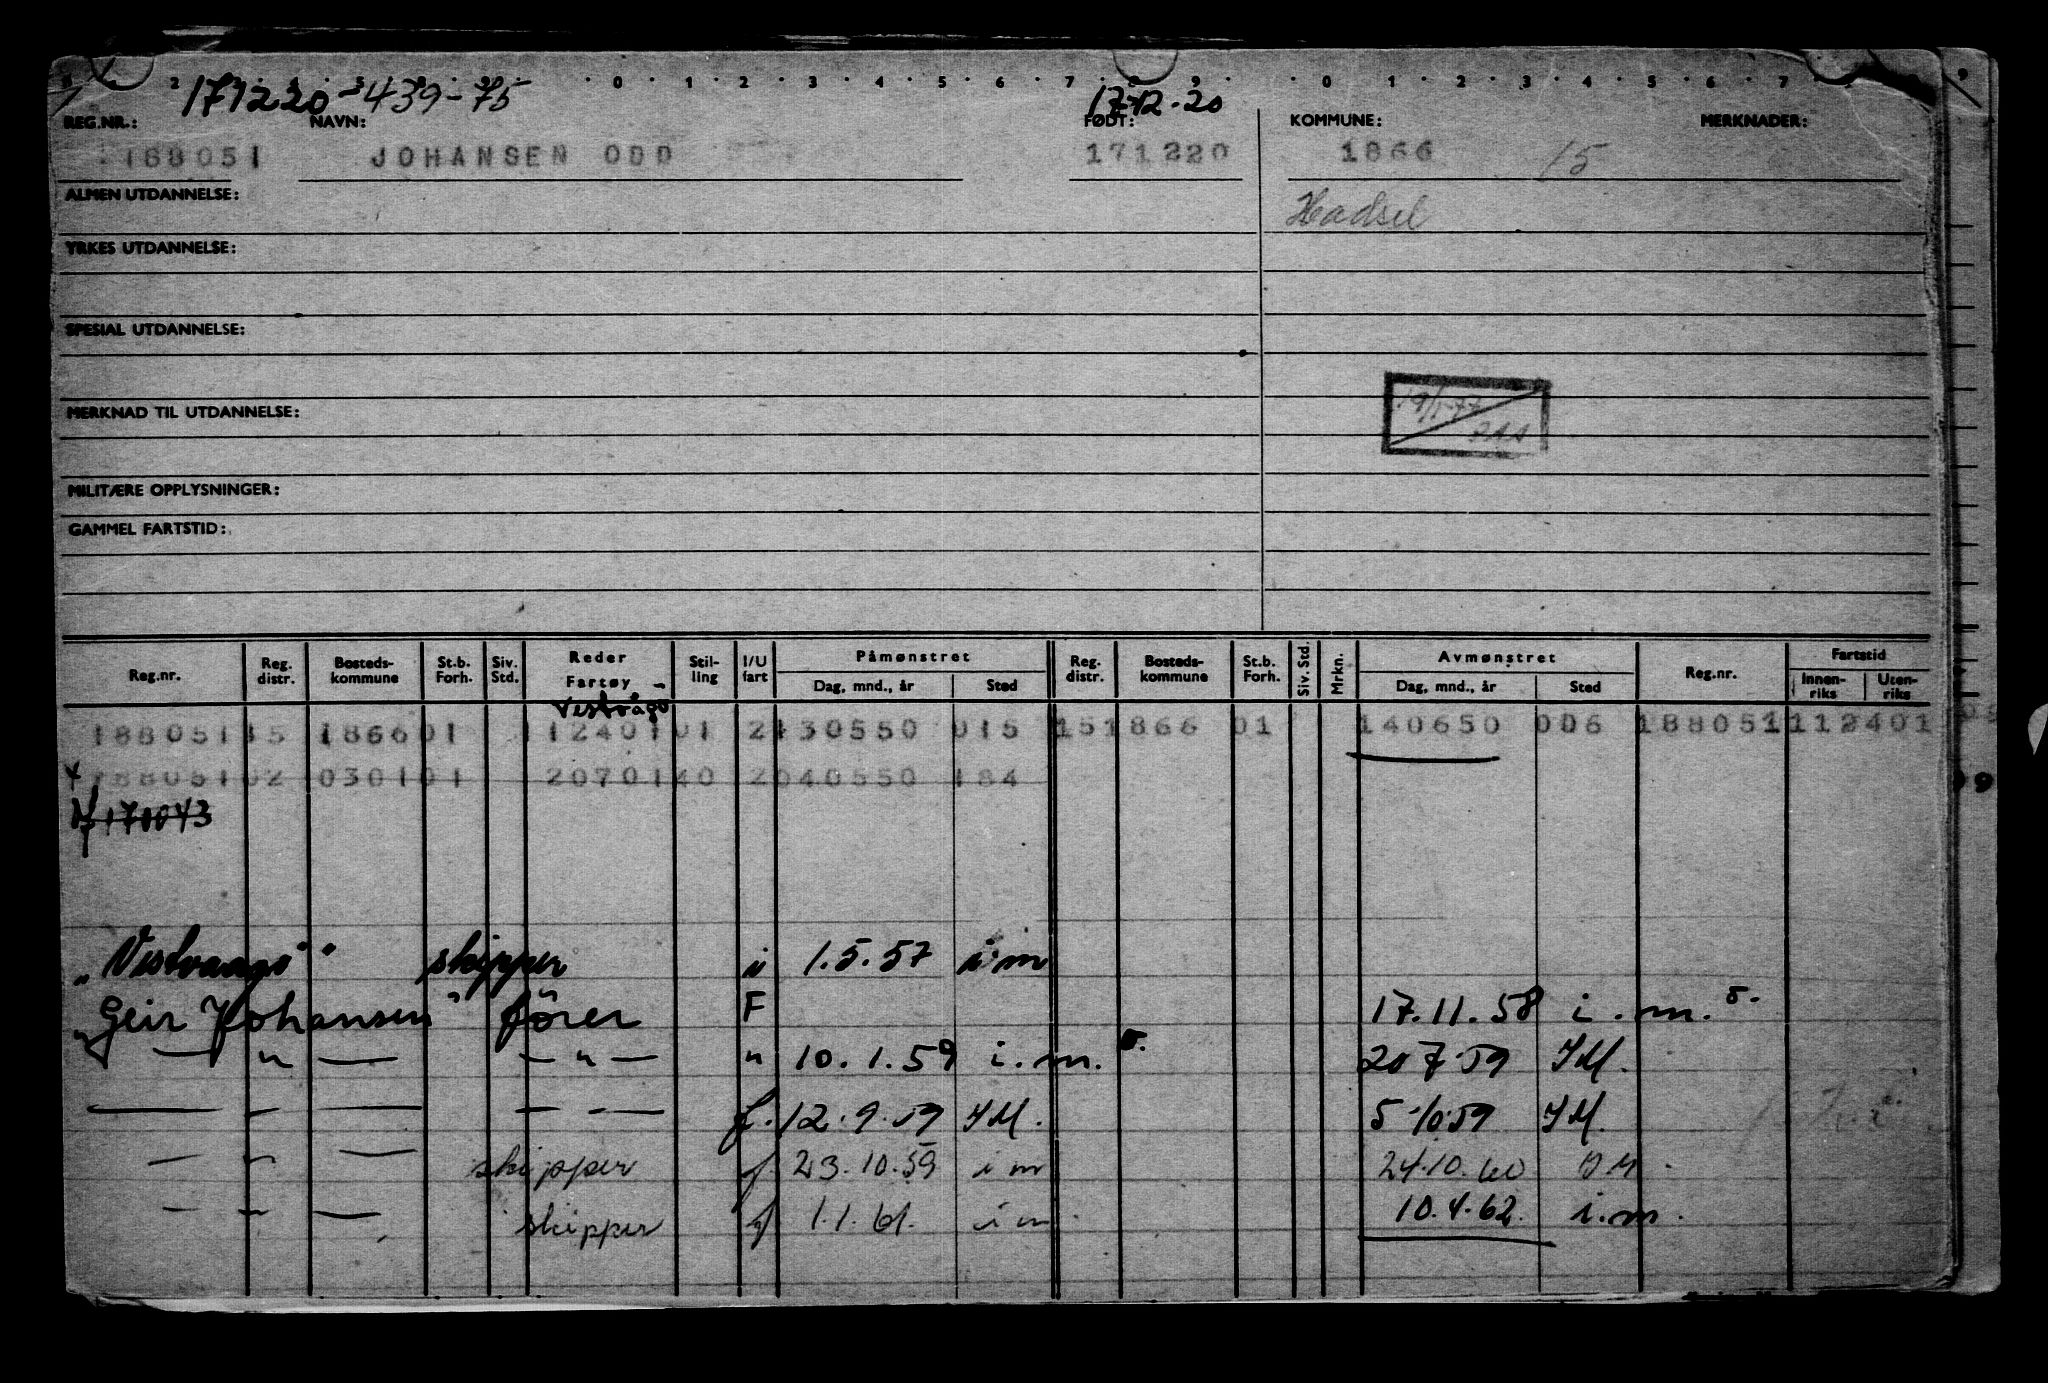 171220-439-75 17-12-20
REG.NR.: NAVN: FØDT: KOMMUNE: MERKNADER:
188051 JOHANSEN ODD 171220 1866 15
ALMEN UTDANNELSE: Hadsel
YRKES UTDANNELSE:
SPESIAL UTDANNELSE:
MERKNAD TIL UTDANNELSE:
MILITÆRE OPPLYSNINGER:
GAMMEL FARTSTID:
Reg.nr. Reg. distr. Bosteds-kommune St.b. Forh. Siv. Std. Reder Fartøy Stil-ling I/U fart Påmønstret Dag, mnd., år Sted Reg. distr. Bosteds-kommune St.b. Forh. Siv. Std. Mrkn. Avmønstret Dag, mnd., år Sted Reg.nr. Fartstid Innen-riks Uten-riks
Vestvågø
188051 15 1866 01 11240101 2 130550 015 15 1866 01 140650 006 188051 112401
188051 02 0301 01 20701 40 2 040550 184
170043
"Vestvaagø" skipper i 1.5.57 i m
"Geir Johansen" förer F 17.11.58 i. m.
— " — — " — " 10.1.59 i. m. 20 7 59 IM.
— — — — — f. 12.9.59 IM. 5-10-59 IM.
— — — skipper f 23.10.59 i m 24.10.60 IM.
— — — skipper f 1.1.61. i m 10.4.62. i.m.